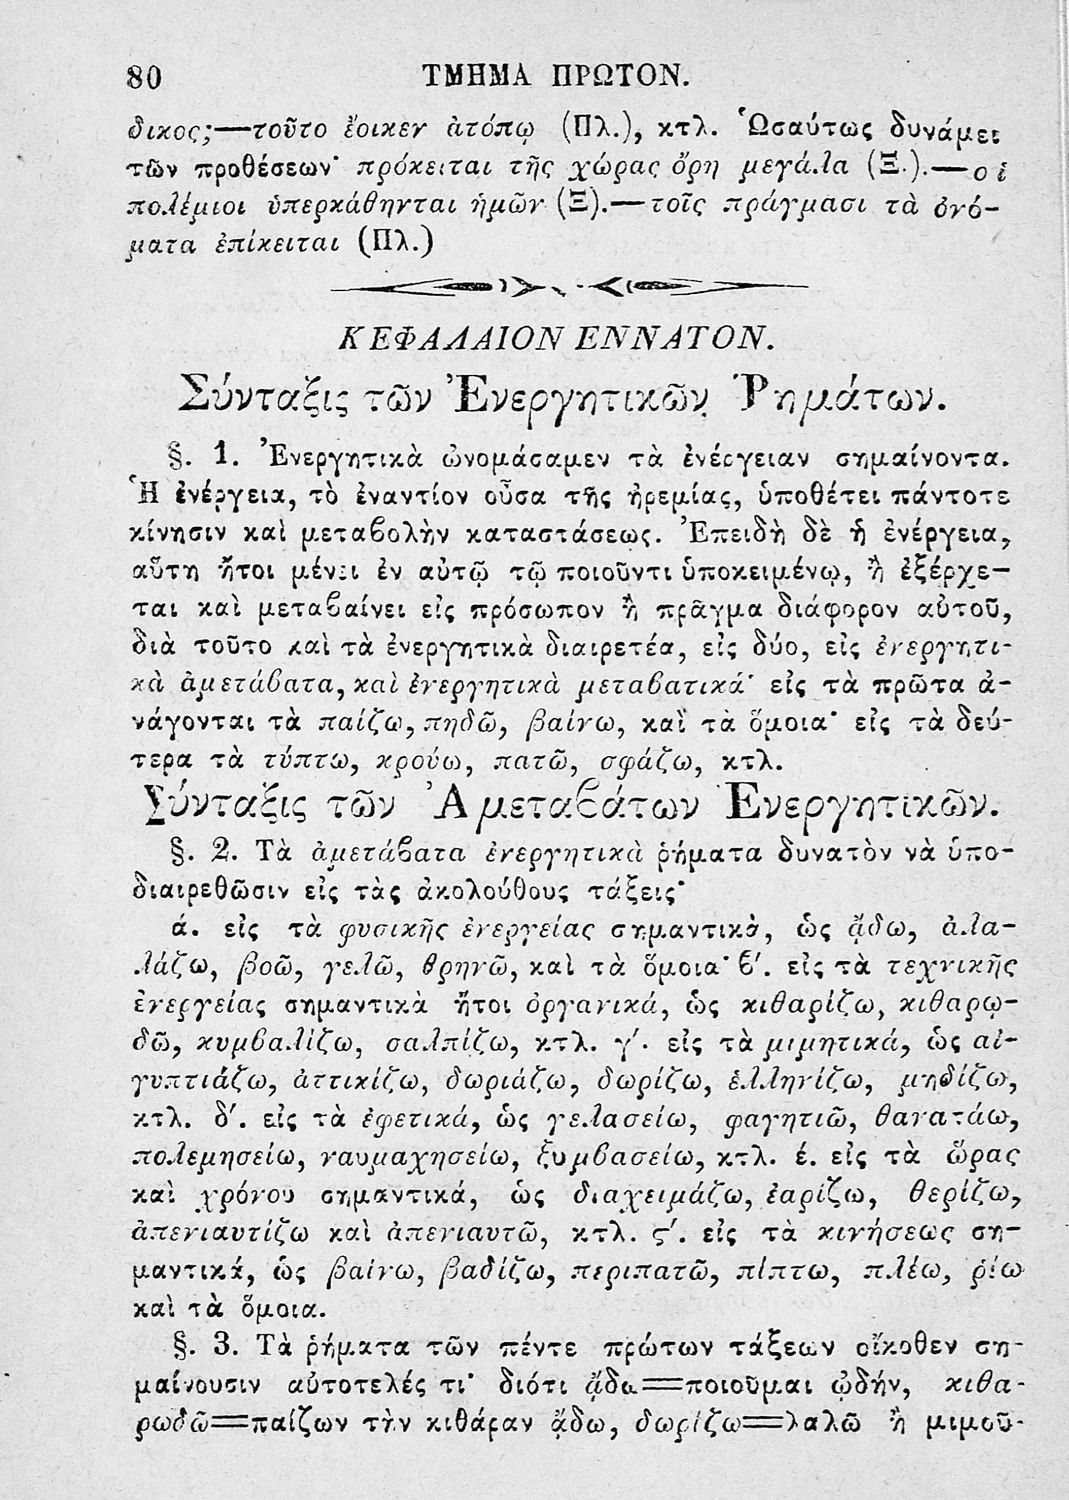 80 ΤΜΗΜΑ ΠΡΩΤΟΝ.
δικος;—τοῦτο ἔοικεν ἀτόπῳ (Πλ.), κτλ. Ὡσαύτως δυνάμει
τῶν προθέσεων· πρόκειται τῆς χώρας ὄρη μεγάλα (Ξ.).—οἱ
πολέμιοι ὑπερκάθηνται ἡμῶν (Ξ).—τοῖς πράγμασι τὰ ὀνό-
ματα ἐπίκειται (Πλ.)
ΚΕΦΑΛΑΙΟΝ ΕΝΝΑΤΟΝ.
Σύνταξις τῶν Ἐνεργητικῶν Ῥημάτων.
§. 1. Ἐνεργητικὰ ὠνομάσαμεν τὰ ἐνέργειαν σημαίνοντα.
Ἡ ἐνέργεια, τὸ ἐναντίον οὖσα τῆς ἠρεμίας, ὑποθέτει πάντοτε
κίνησιν καὶ μεταβολὴν καταστάσεως. Ἐπειδὴ δὲ ἡ ἐνέργεια,
αὕτη ἤτοι μένει ἐν αὐτῷ τῷ ποιοῦντι ὑποκειμένῳ, ἢ ἐξέρχε-
ται καὶ μεταβαίνει εἰς πρόσωπον ἢ πρᾶγμα διάφορον αὐτοῦ,
διὰ τοῦτο καὶ τὰ ἐνεργητικὰ διαιρετέα, εἰς δύο, εἰς ἐνεργητι-
κὰ ἀμετάβατα, καὶ ἐνεργητικὰ μεταβατικά· εἰς τὰ πρῶτα ἀ-
νάγονται τὰ παίζω, πηδῶ, βαίνω, καὶ τὰ ὅμοια· εἰς τὰ δεύ-
τερα τὰ τύπτω, κρούω, πατῶ, σφάζω, κτλ.
Σύνταξις τῶν Ἀμεταβάτων Ἐνεργητικῶν.
§. 2. Τὰ ἀμετάβατα ἐνεργητικὰ ῥήματα δυνατὸν νὰ ὑπο-
διαιρεθῶσιν εἰς τὰς ἀκολούθους τάξεις·
ά. εἰς τὰ φυσικῆς ἐνεργείας σημαντικὰ, ὡς ᾄδω, ἀλα-
λάζω, βοῶ, γελῶ, θρηνῶ, καὶ τὰ ὅμοια· β′. εἰς τὰ τεχνικῆς
ἐνεργείας σημαντικὰ ἤτοι ὀργανικά, ὡς κιθαρίζω, κιθαρῳ-
δῶ, κυμβαλίζω, σαλπίζω, κτλ. γ′. εἰς τὰ μιμητικά, ὡς αἰ-
γυπτιάζω, ἀττικίζω, δωριάζω, δωρίζω, ἑλληνίζω, μηδίζω,
κτλ. δ′. εἰς τὰ ἐφετικά, ὡς γελασείω, φαγητιῶ, θανατάω,
πολεμησείω, ναυμαχησείω, ξυμβασείω, κτλ. έ. εἰς τὰ ὥρας
καὶ χρόνου σημαντικά, ὡς διαχειμάζω, ἐαρίζω, θερίζω,
ἀπενιαυτίζω καὶ ἀπενιαυτῶ, κτλ. ϛ′. εἰς τὰ κινήσεως ση-
μαντικά, ὡς βαίνω, βαδίζω, περιπατῶ, πίπτω, πλέω, ῥέω
καὶ τὰ ὅμοια.
§. 3. Τὰ ῥήματα τῶν πέντε πρώτων τάξεων οἴκοθεν ση-
μαίνουσιν αὐτοτελές τι· διότι ᾄδω=ποιοῦμαι ᾠδήν, κιθα-
ρωδῶ=παίζων τὴν κιθάραν ᾄδω, δωρίζω=λαλῶ ἢ μιμοῦ-